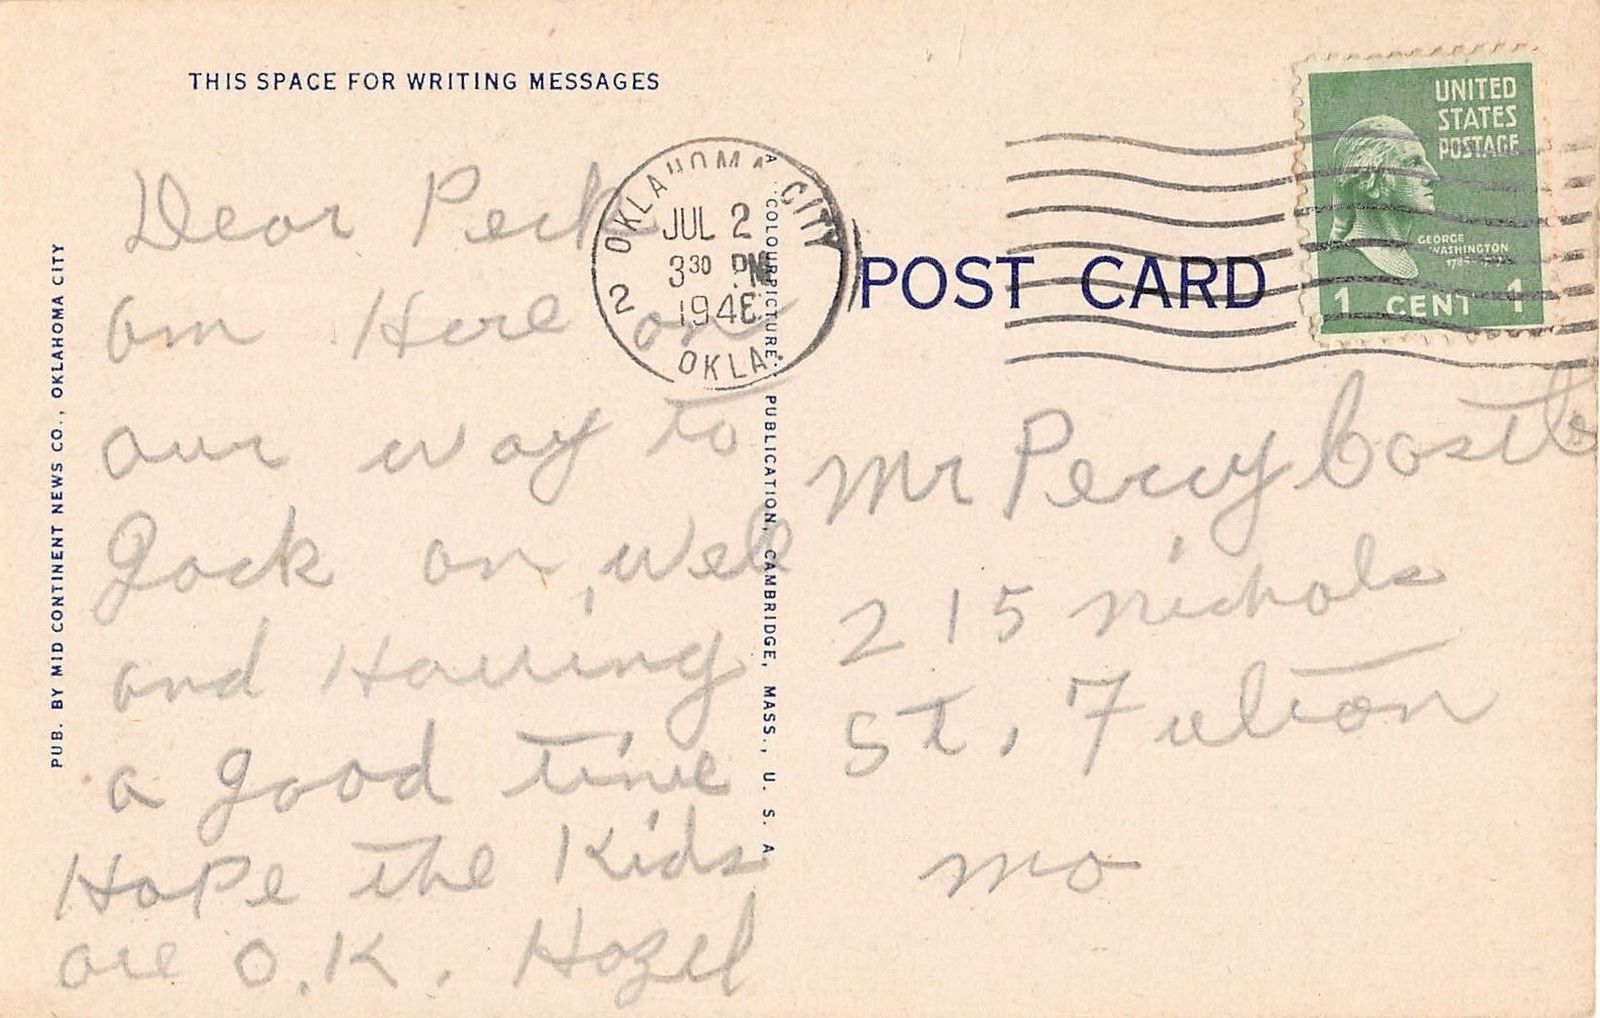 THIS SPACE FOR WRITING MESSAGES
Dear Perk
am Here on
our way to
Jack on, well
and Having
a good time
Hope the Kids
are O.K. Hazel
PUB. BY MID CONTINENT NEWS CO., OKLAHOMA CITY
A "COLOURPICTURE" PUBLICATION, CAMBRIDGE, MASS., U. S. A
OKLAHOMA CITY
JUL 2
3 30 PM
1946
2
OKLA.
POST CARD
UNITED
STATES
POSTAGE
GEORGE
WASHINGTON
1 CENT 1
Mr Percy Costle
215 Nichols
St, Fulton
Mo